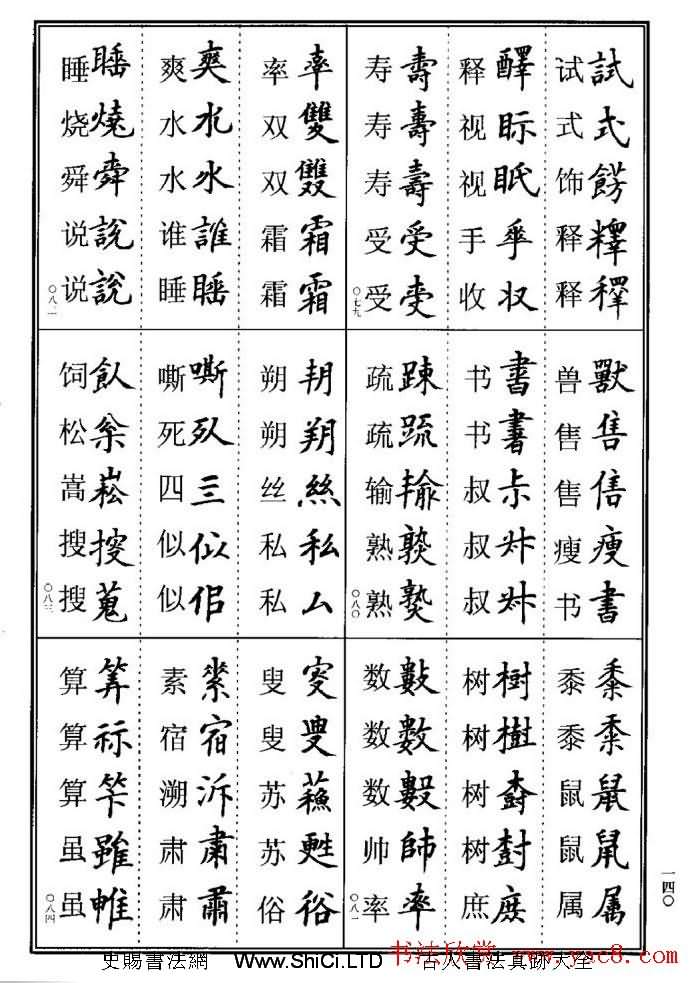 試式餝釋釋
试式饰释释
釋眎眡手収
释视视手收
壽壽壽受受
寿寿寿受受
〇七九
獸售售瘦書
兽售售瘦书
書書尗
书书叔叔叔
踈䟽輸
疏疏输熟熟
〇八〇
黍黍鼠鼠属
黍黍鼠鼠属
樹樹庶
树树树树庶
數數數帥率
数数数帅率
〇八一
率雙雙霜霜
率双双霜霜
爽水水誰睡
爽水水谁睡
睡燒舜說說
睡烧舜说说
朔絲私厶
朔朔丝私私
嘶死亖似佀
嘶死四似似
飤枀崧搜蒐
饲松嵩搜搜
〇八三
叟叟蘓甦俗
叟叟苏苏俗
素宿泝肅肅
素宿溯肃肃
筭祘笇雖帷
算算算虽虽
〇八四
一四〇
史賜書法網 Www.ShiCi.LTD 古人書法真跡大全
书法欣赏 www.yac8.com